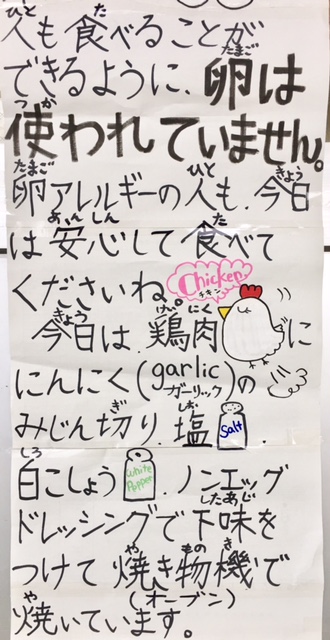 人も食べることが
できるように、卵は
使われていません。
卵アレルギーの人も、今日
は安心して食べて
くださいね。Chicken チキン
今日は、鶏肉に
にんにく(garlic ガーリック)の
みじん切り、塩 Salt、
白こしょう White Pepper、ノンエッグ
ドレッシングで下味を
つけて焼き物機で
焼いています。(オーブン)